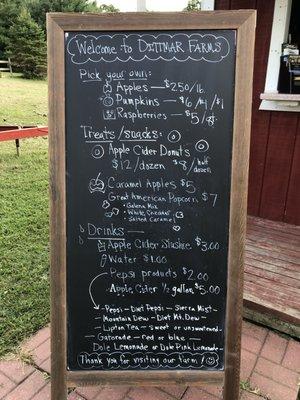 Welcome to DITTMAR FARMS
Pick your own:
Apples — $2.50/lb
Pumpkins —
Raspberries — $5/
Treats/snacks:
Apple Cider Donuts
$12/dozen $8/half dozen
Caramel Apples $5
Great American Popcorn $7
- Galena Mix
- White Cheddar
- Salted Caramel
Drinks —
Apple Cider Slushie $3.00
Water $1.00
Pepsi products $2.00
Apple Cider ½ gallon $5.00
- Pepsi - Diet Pepsi - Sierra Mist -
- Mountain Dew - Diet Mt. Dew -
- Lipton Tea - sweet or unsweetened -
- Gatorade - red or blue -
- Dole Lemonade or Dole Pink Lemonade -
Thank you for visiting our farm!